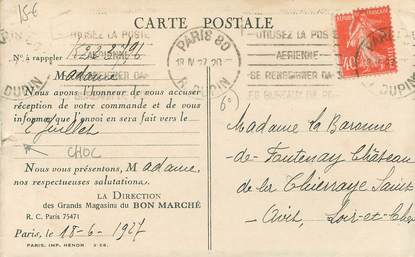 15€
CARTE POSTALE
UTILISEZ LA POSTE
AERIENNE
SE RENSEIGNER DANS
PARIS 80
18 VI 27
R. DUPIN
40
Nº à rappeler
Madame
Nous avons l'honneur de vous accuser
réception de votre commande et de vous
informer que l'envoi en sera fait vers le
2 Juillet
CHOC
Nous vous présentons, Madame,
nos respectueuses salutations.
LA DIRECTION
des Grands Magasins du BON MARCHÉ
R. C. Paris 75471
Paris, le 18-6-1927
PARIS. IMP. HENON
Madame la Baronne
de Fontenay Château
de la Thierraye Saint
Avit, Loir-et-Cher